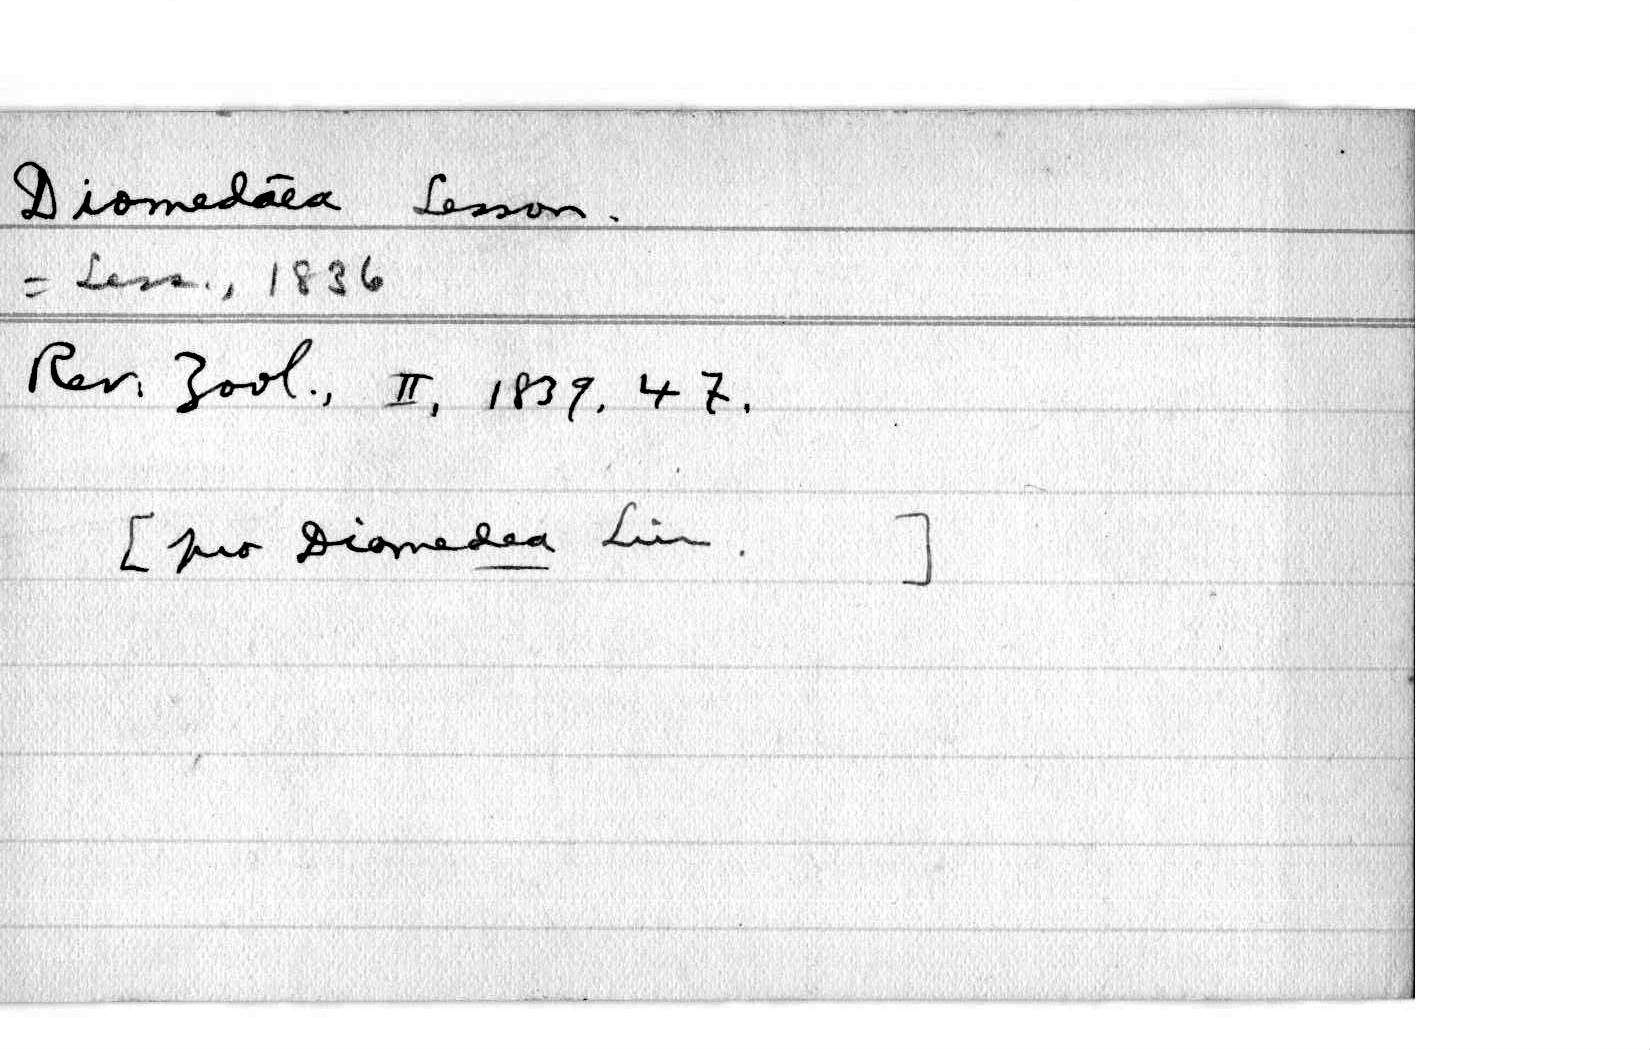 Diomedāea Lesson.
= Less., 1836
Rev. Zool., II, 1839, 47.
[pro Diomedea Linn. ]